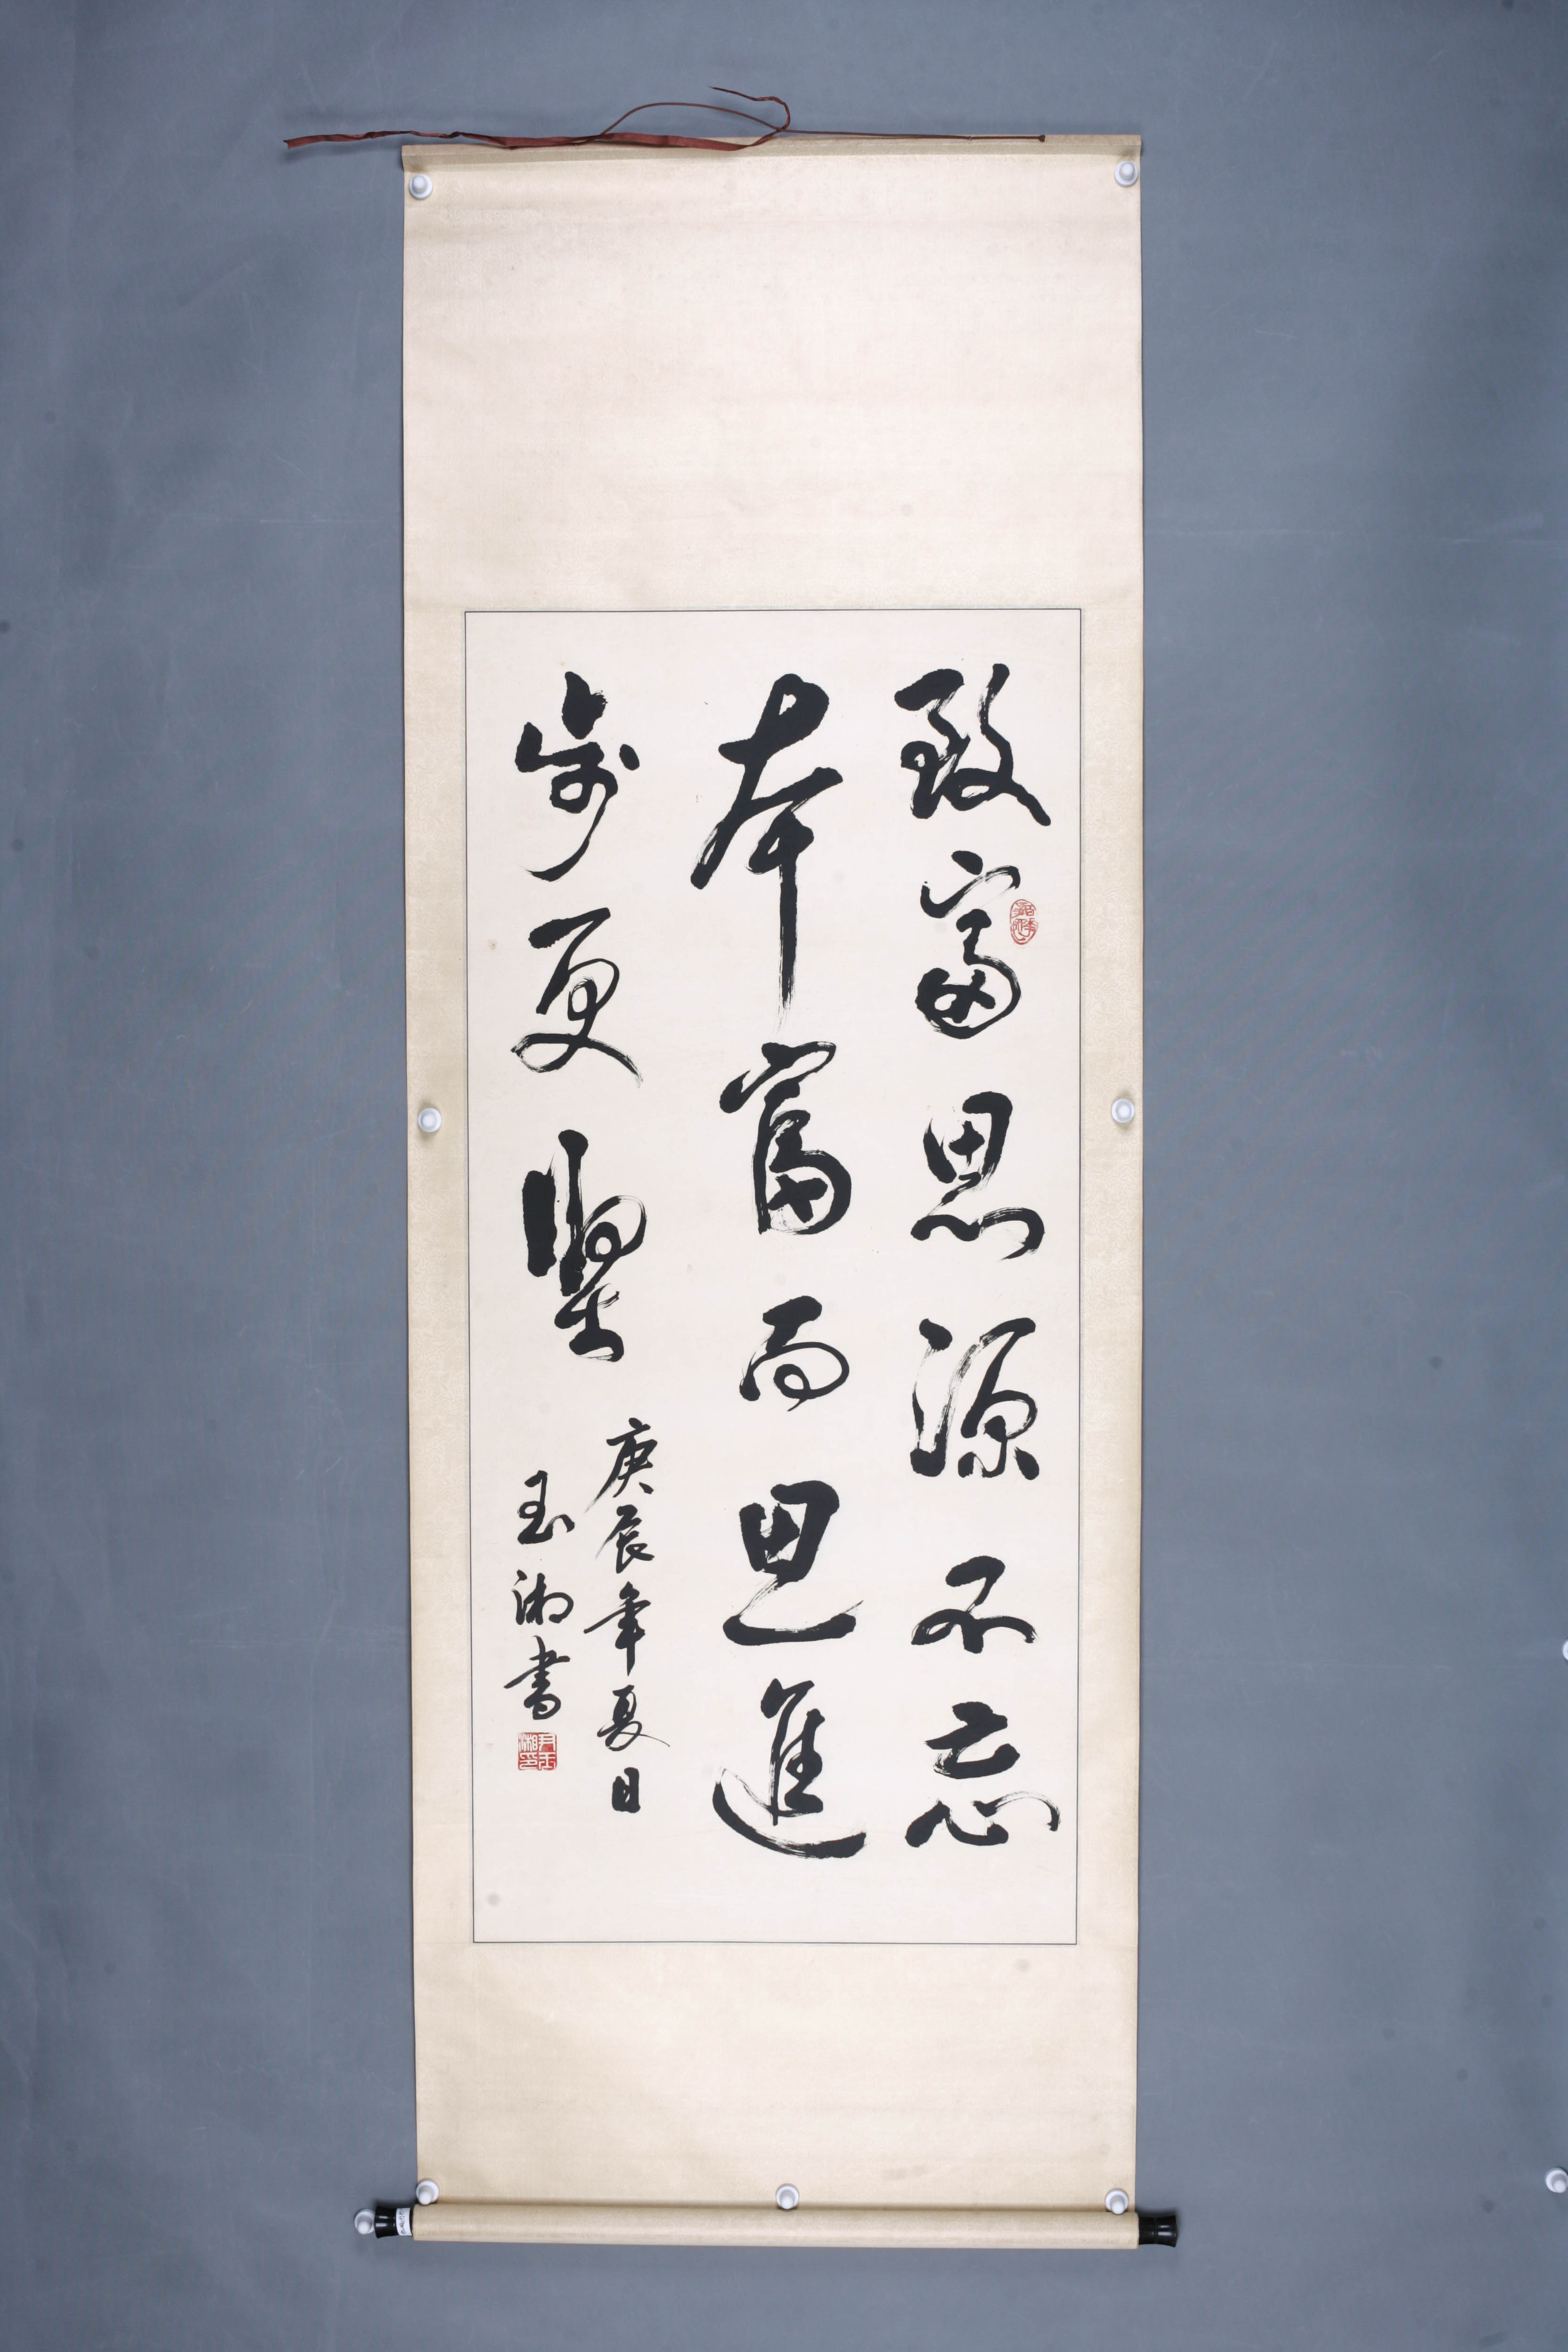 致富思源不忘
本富而思進
步更堅
庚辰年夏日
玉湘書